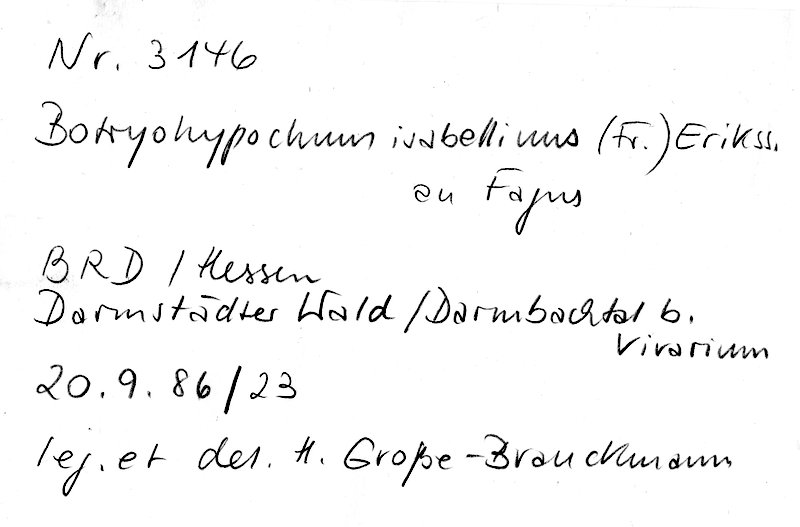 Nr. 3146
Botryohypochnus isabellinus (Fr.) Erikss.
an Fagus
BRD / Hessen
Darmstädter Wald / Darmbachtal b.
Vivarium
20.9.86/23
leg. et det. H. Große-Brauckmann